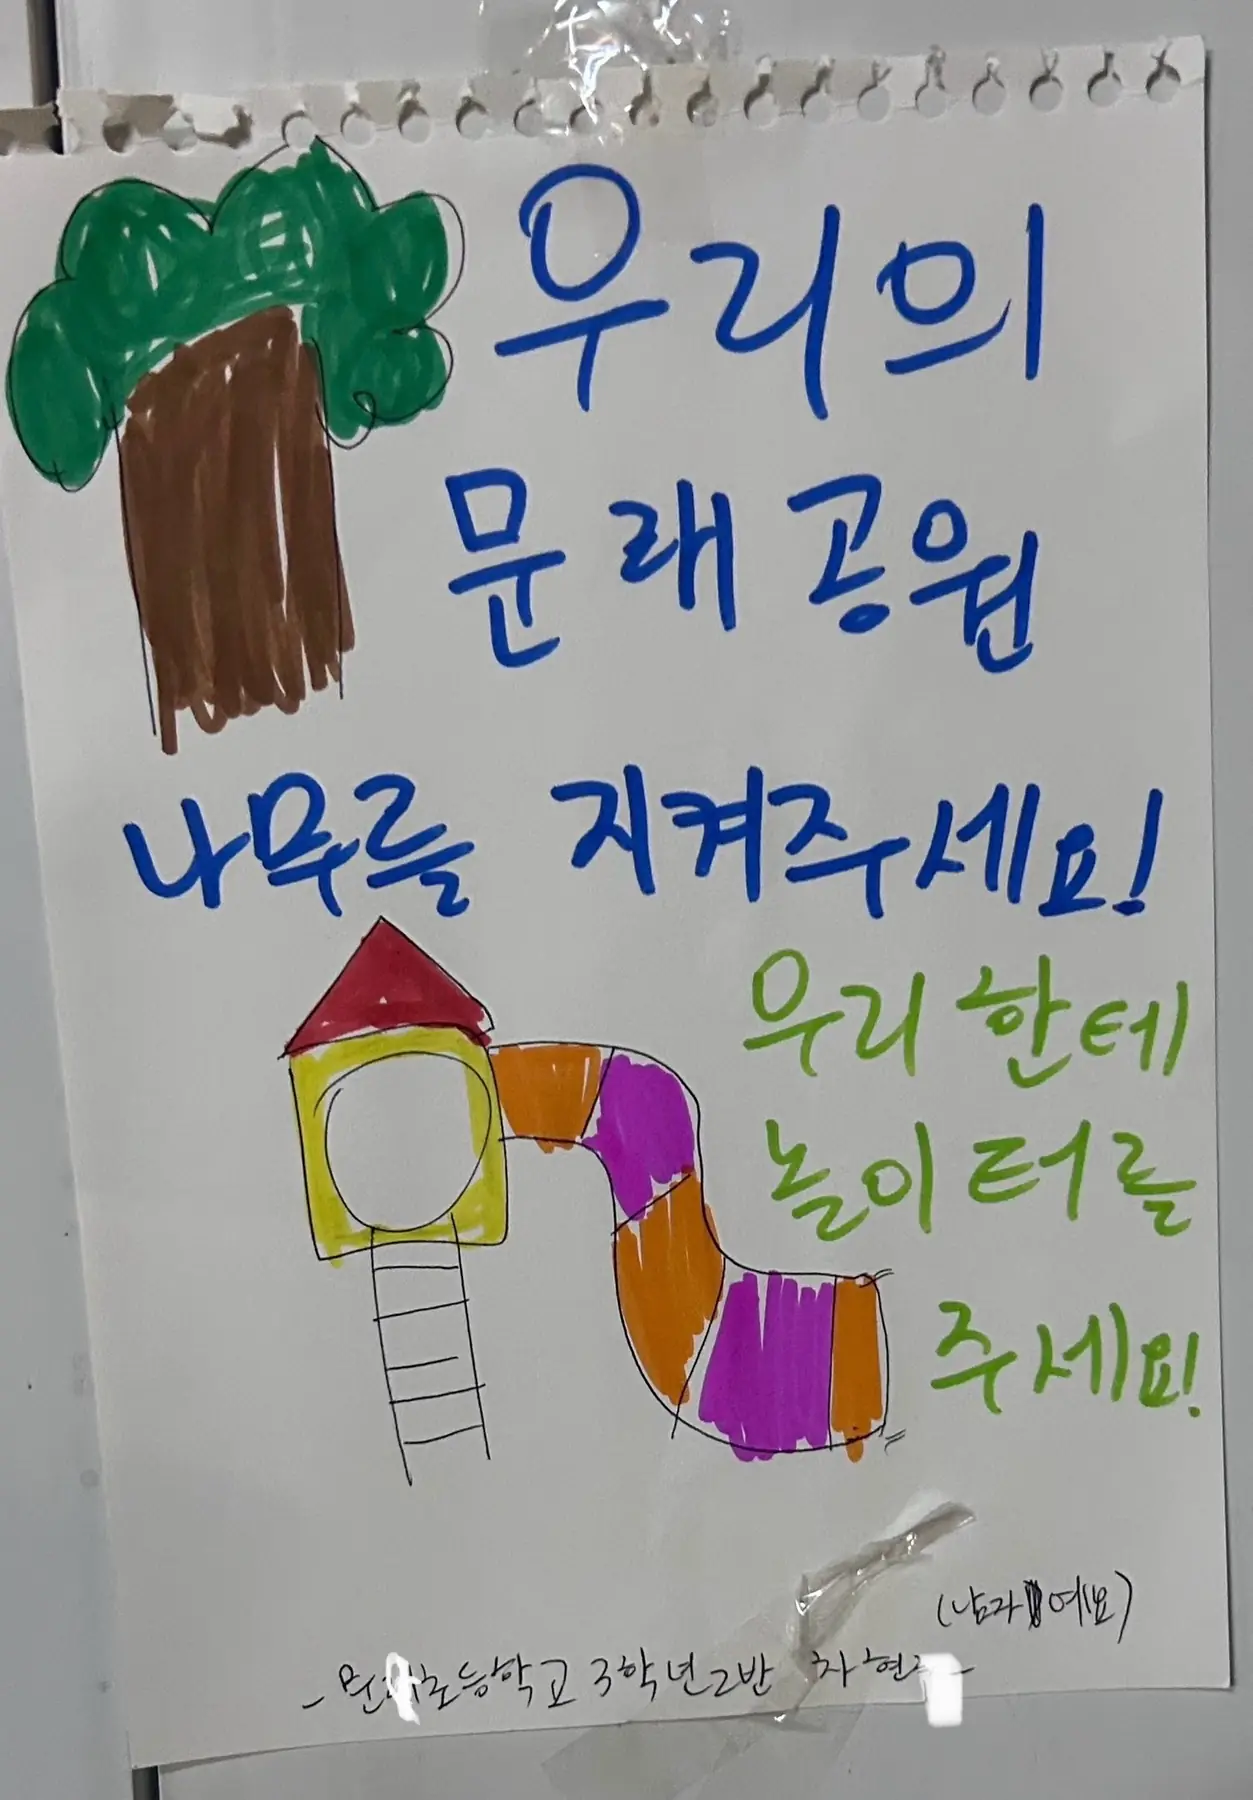 우리의
문래공원
나무를 지켜주세요!
우리한테
놀이터를
주세요!
(남자예요)
3학년2반